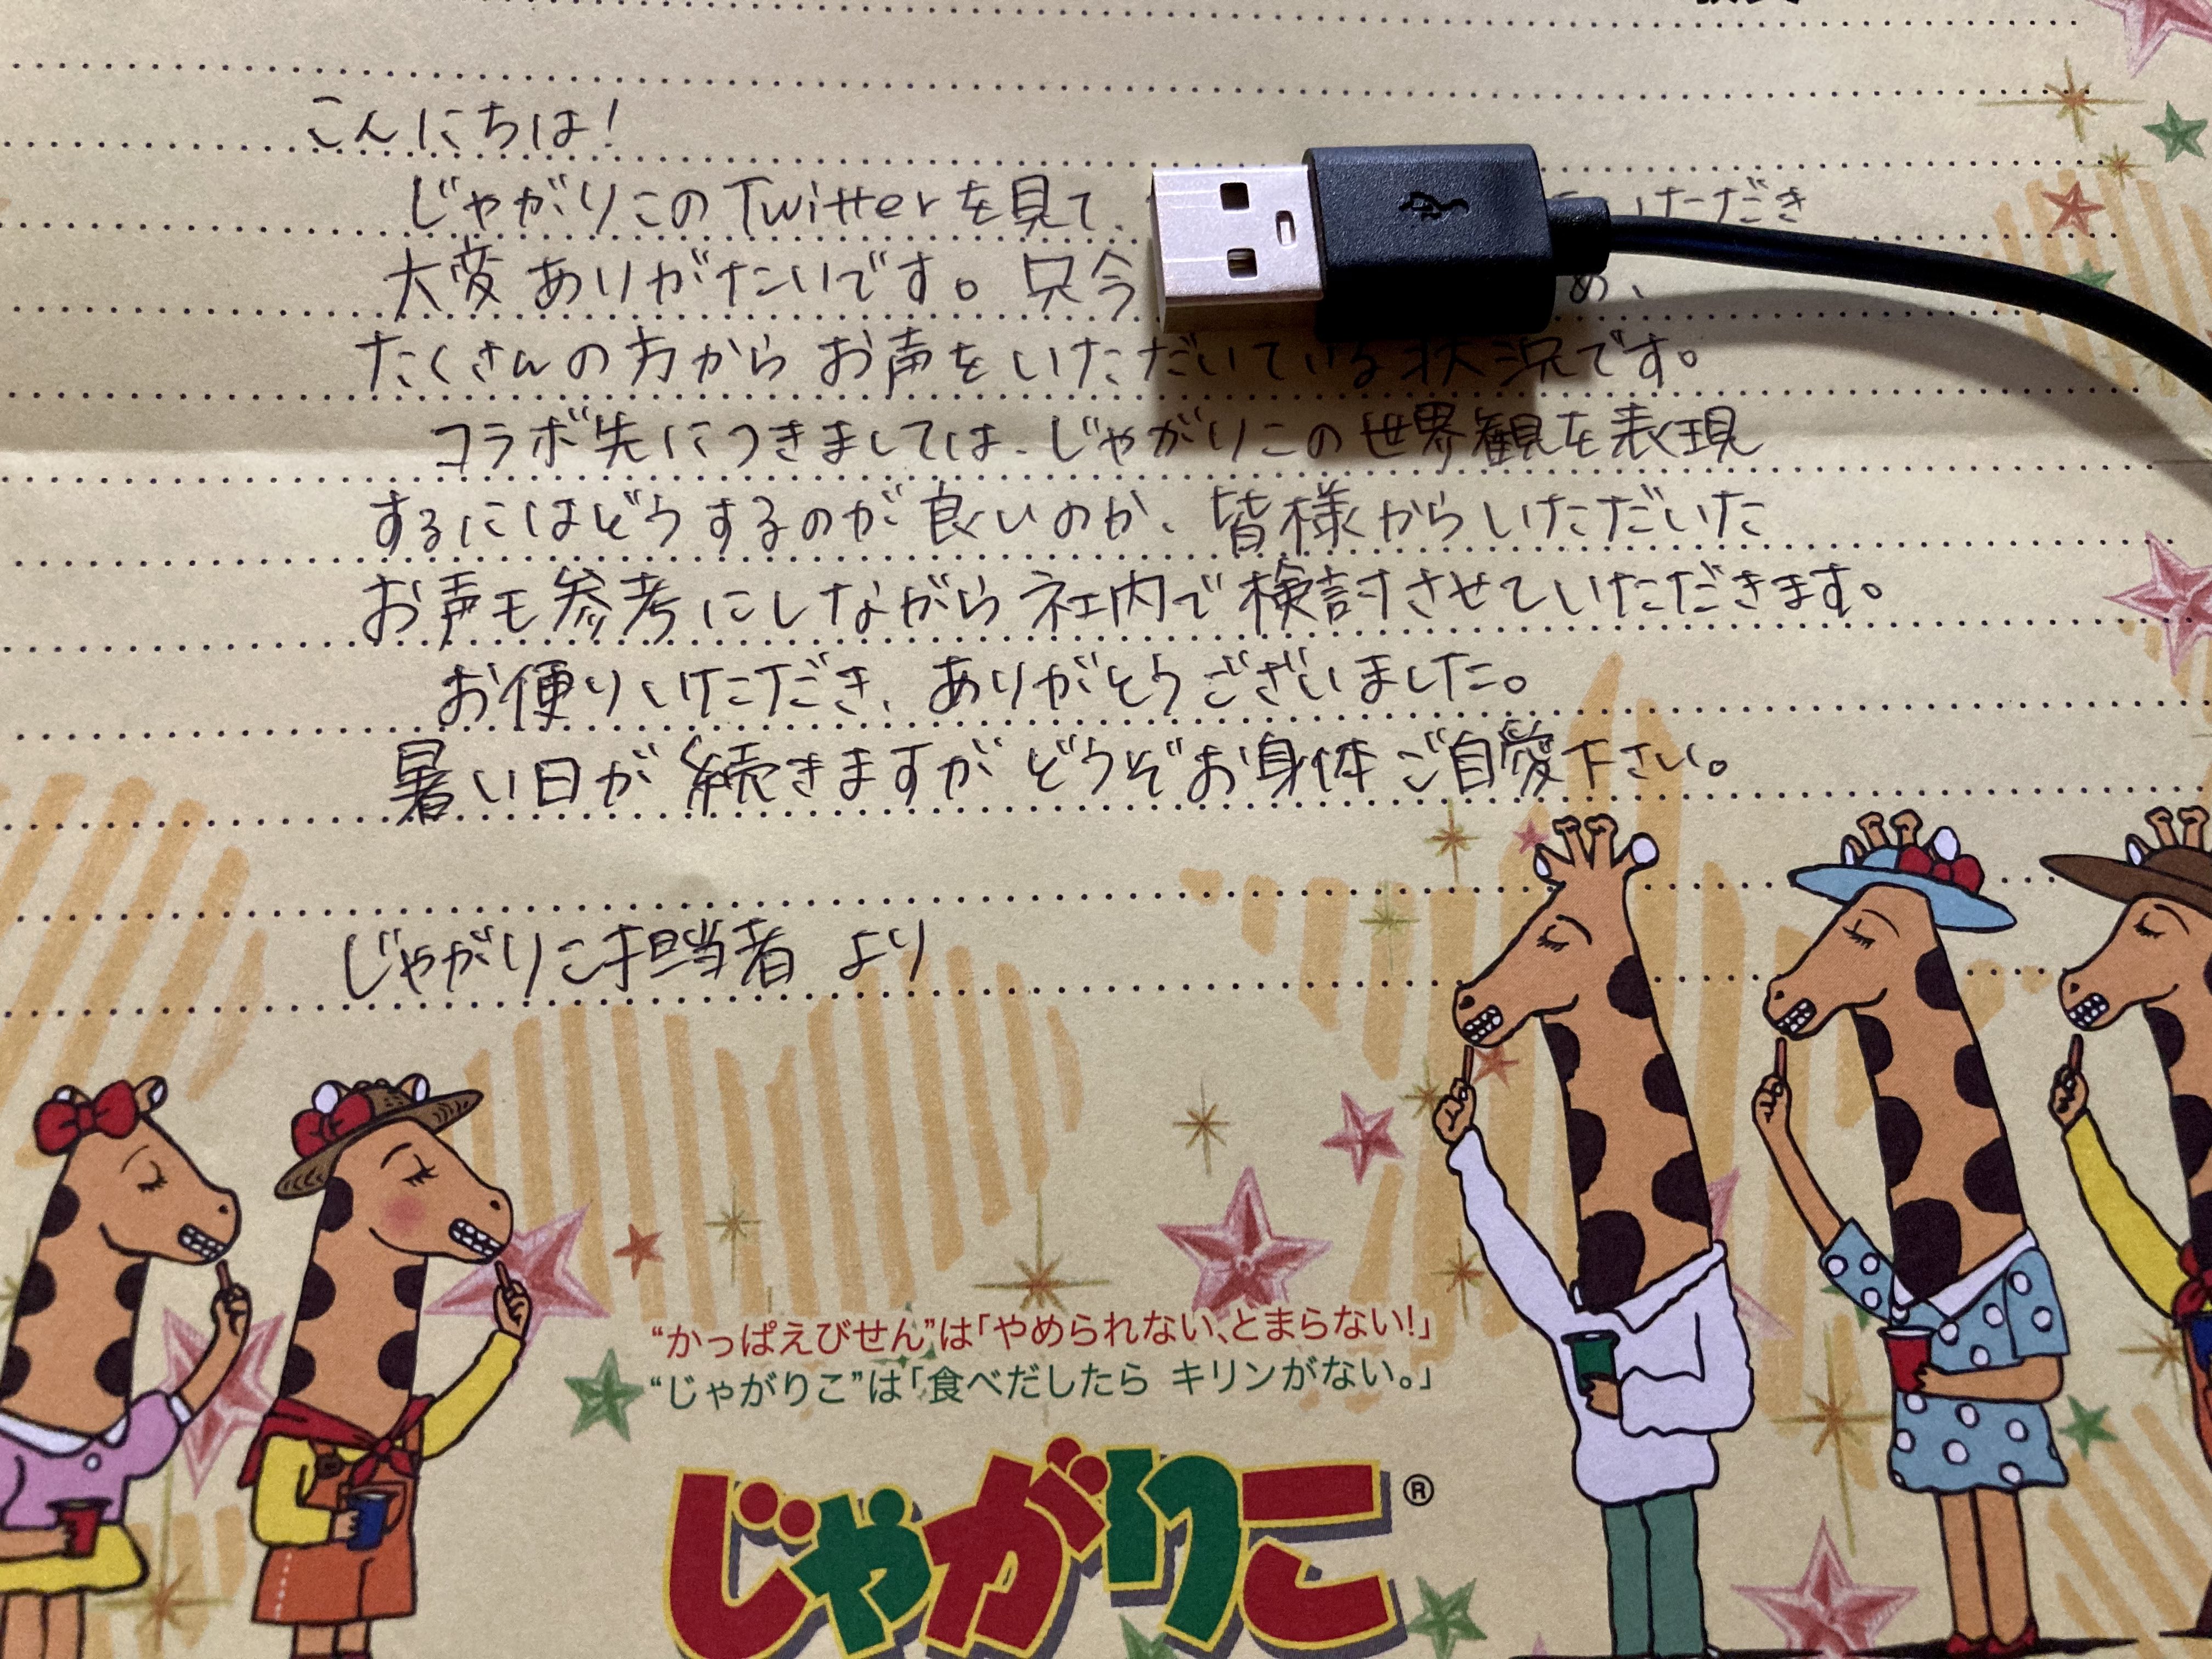 こんにちは!
じゃがりこのTwitterを見て、 いただき
大変ありがたいです。只今 め、
たくさんの方からお声をいただいている状況です。
コラボ先につきましては、じゃがりこの世界観を表現
するにはどうするのが良いのか、皆様からいただいた
お声も参考にしながら社内で検討させていただきます。
お便りいただき、ありがとうございました。
暑い日が続きますがどうぞお身体ご自愛下さい。
じゃがりこ担当者 より
“かっぱえびせん”は「やめられない、とまらない!」
“じゃがりこ”は「食べだしたら キリンがない。」
じゃがりこ®